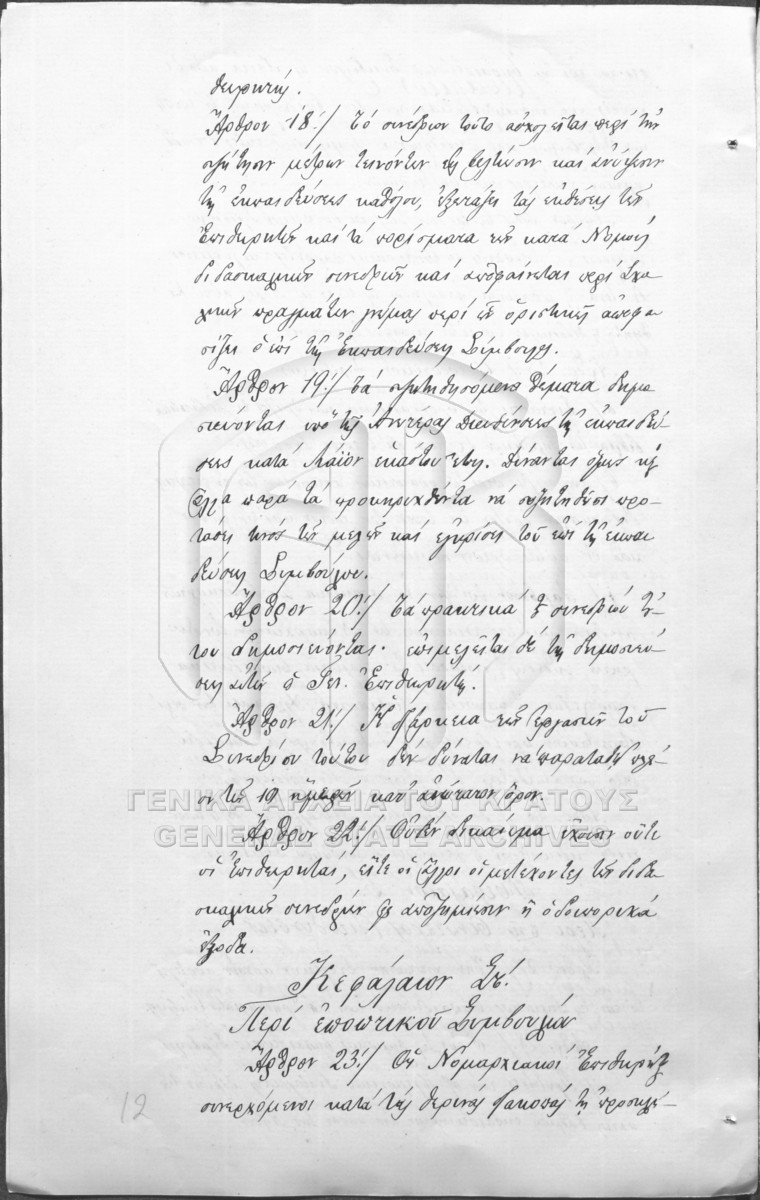 θεωρητής.
Ἄρθρον 18./ Τό συνέδριον τοῦτο ἀσχολεῖται περί τήν
συζήτησιν μέτρων τεινόντων εἰς βελτίωσιν καί ἀνύψωσιν
τῆς ἐκπαιδεύσεως καθόλου, ἐξετάζει τάς ἐκθέσεις τῶν
Ἐπιθεωρητῶν καί τά πορίσματα τῶν κατά Νομούς
διδασκαλικῶν συνεδριῶν καί ἀποφαίνεται περί Σχο-
λικῶν πραγμάτων γνώμας περί ὧν ὁριστικῶς ἀποφα
σίζει ὁ ἐπί τῆς Ἐκπαιδεύσεως Σύμβουλος.
Ἄρθρον 19./ Τά συζητηθησόμενα θέματα δημο
σιεύονται ὑπό τῆς Ἀνωτέρας Διευθύνσεως τῆς ἐκπαιδεύ-
σεως κατά Μάϊον ἑκάστου ἔτους. Δύνανται ὅμως καί
ἄλλα παρά τά προκηρυχθέντα νά συζητηθῶσι προ-
τάσει τινός τῶν μελῶν καί ἐγκρίσει τοῦ ἐπί τῆς ἐκπαι
δεύσεως Συμβούλου.
Ἄρθρον 20./ Τά πρακτικά τῶν συνεδριῶν
του δημοσιεύονται. ἐπιμελεῖται δέ τῆς δημοσιεύ-
σεως αὐτῶν ὁ Γεν. Ἐπιθεωρητής.
Ἄρθρον 21./ Ἡ διάρκεια τῶν ἐργασιῶν τοῦ
Συνεδρίου τούτου δέν δύναται νά παραταθῇ πλέ-
ον τῶν 19 ἡμερῶν κατ' ἀνώτατον ὅρον.
Ἄρθρον 22./ Οὐδέν δικαίωμα ἔχουσιν οὔτε
οἱ Ἐπιθεωρηταί, εἴτε οἱ ἄλλοι οἱ μετέχοντες τῶν διδα
σκαλικῶν συνεδριῶν εἰς ἀποζημίωσιν ἤ ὁδοιπορικά
ἔξοδα.
Κεφάλαιον Στ!
Περί ἐποπτικοῦ Συμβουλίου
Ἄρθρον 23./ Οἱ Νομαρχιακοί Ἐπιθεωρηταί
συνερχόμενοι κατά τάς θερινάς διακοπάς τῇ προσκλή-
12
ΓΕΝΙΚΑ ΑΡΧΕΙΑ ΤΟΥ ΚΡΑΤΟΥΣ
GENERAL STATE ARCHIVES